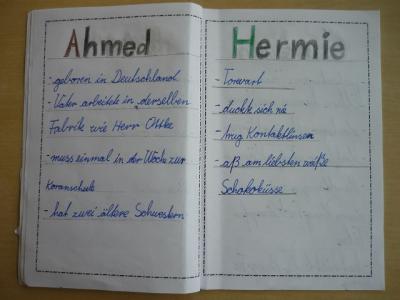 Ahmed
- geboren in Deutschland
- Vater arbeitete in derselben
Fabrik wie Herr Ottke
- muss einmal in der Woche zur
Koranschule
- hat zwei ältere Schwestern
Hermie
- Torwart
- duckt sich nie
- trug Kontaktlinsen
- aß am liebsten weiße
Schokoküsse